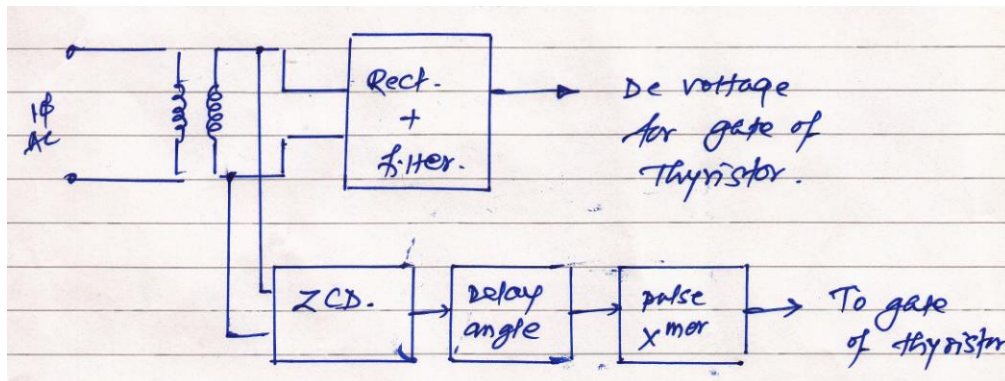 1ϕ
AC
Rect.
+
filter.
Dc voltage
for gate of
Thyristor.
ZCD.
Delay
angle
pulse
Xmer
To gate
of thyristor